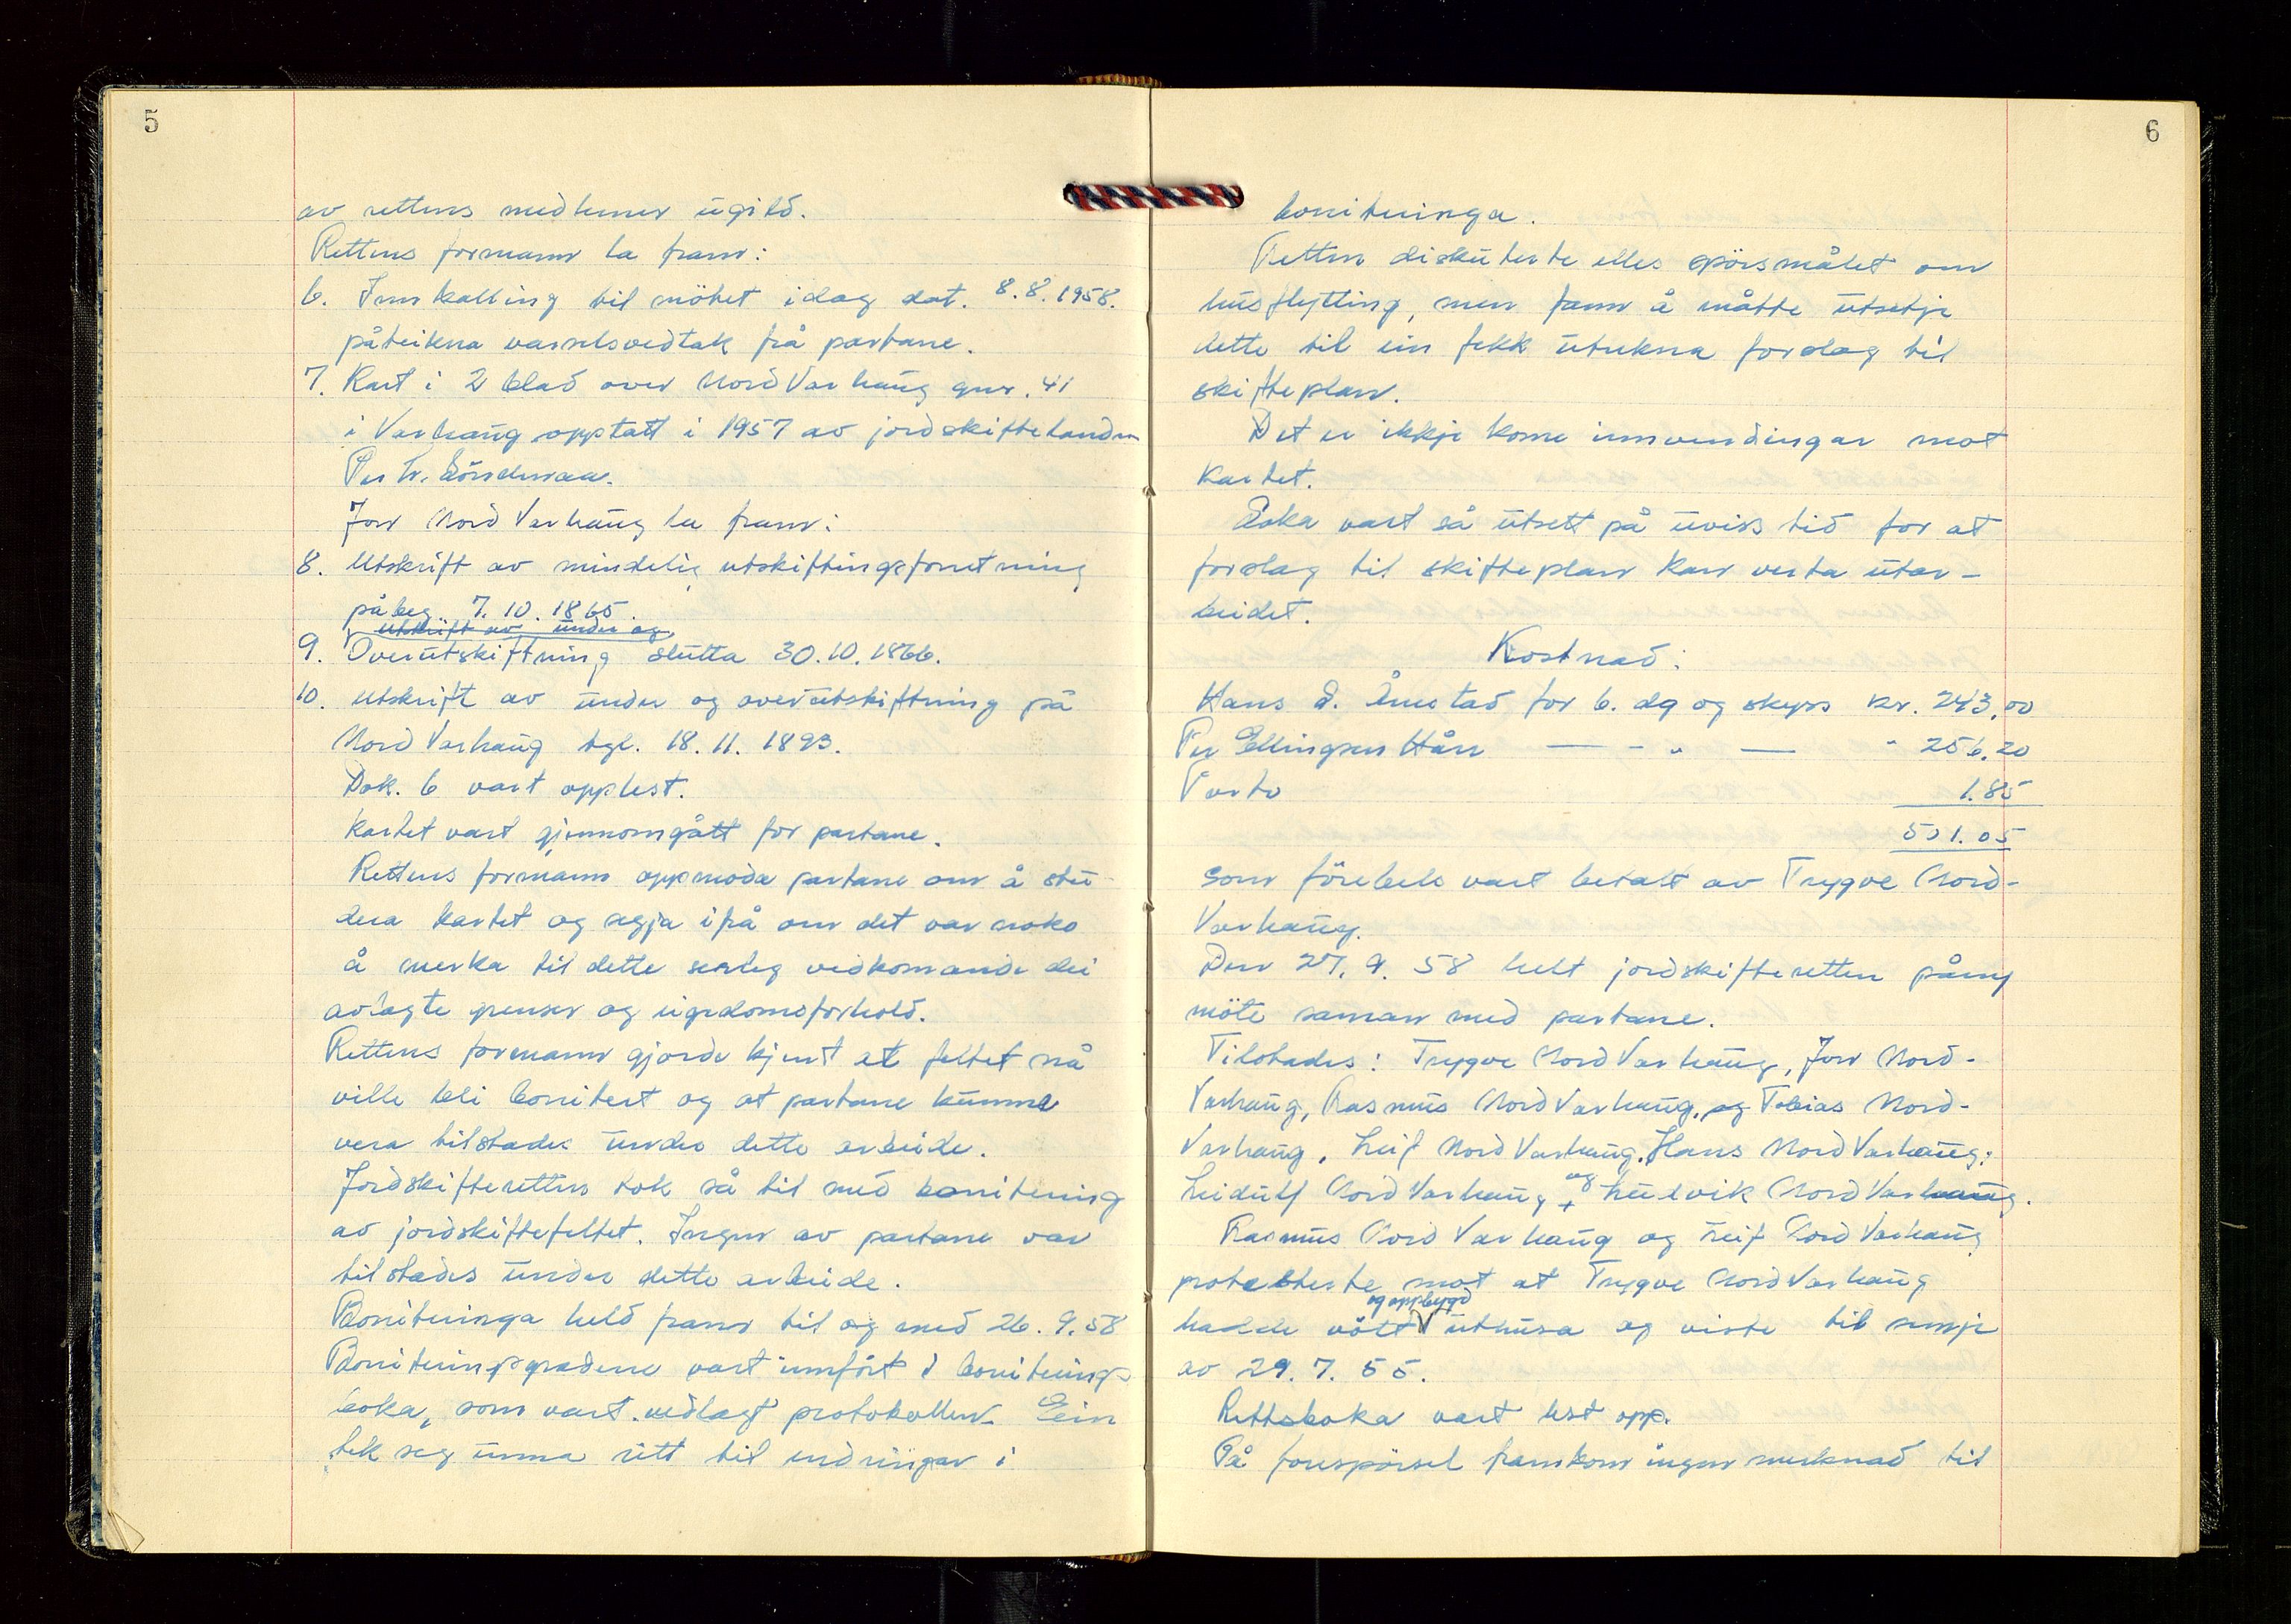 5
av rettens medlemer ugild.
Rettens formann la fram:
6. Innkalling til møtet idag dat. 8.8.1958.
påteikna varselsvedtak frå partane.
7. Kart i 2 blad over Nord Varhaug gnr. 41
i Varhaug opptatt i 1957 av jordskiftekand.
Per Tr.
Jon Nord Varhaug la fram:
8. Utskrift av mindelig utskiftingsforretning
påbeg. 7.10.1865.
utskrift av under og
9. Overutskiftning slutta 30.10.1866.
10. Utskrift av under og overutskiftning på
Nord Varhaug tgl. 18.11.1893.
Dok. 6 vart opplest.
Kartet vart gjennomgått for partane.
Rettens formann oppmoda partane om å stu-
dera kartet og segja ifrå om det var noko
å merka til dette serleg vedkomande dei
avlagte grenser og eigedomsforhold.
Rettens formann gjorde kjent at feltet nå
ville bli bonitert og at partane kunne
vera tilstades under dette arbeide.
Jordskifteretten tok så til med bonitering
av jordskiftefeltet. Ingen av partane var
tilstades under dette arbeide.
Boniteringa held fram til og med 26.9.58
Boniteringsgradene vart innført i bonitering-
boka, som vart vedlagt protokollen. Ein
tok seg unna rett til endringar i
6
boniteringa.
Retten diskuterte elles spörsmålet om
husflytting, men fann å måtte utsetje
dette til ein fekk utrekna forslag til
skifteplan.
Det er ikkje kome innvendingar mot
kartet.
Saka vart så utsett på uviss tid for at
forslag til skifteplan kan verta utar-
beidet.
Kostnad:
Hans S. Ånestad for 6. dg og skyss kr. 243,00
Per Ellingsen Hån — - " — " 256.20
Porto 1.85
501.05
som förebels vart betalt av Trygve Nord-
Varhaug.
Den 27.9.58 helt jordskifteretten påny
möte saman med partane.
Tilstades: Trygve Nord Varhaug, Jon Nord-
Varhaug, Rasmus Nord Varhaug, og Tobias Nord-
Varhaug, Leif Nord Varhaug, Hans Nord Varhaug,
Leidulf Nord Varhaug + og Ludvik Nord Varhaug.
Rasmus Nord Varhaug og Leif Nord Varhaug
protesterte mot at Trygve Nord Varhaug
og oppbygd
hadde völt uthusa og viste til semje
av 29.7.55.
Rettsboka vart lest opp.
På forespörsel framkom ingen merknad til